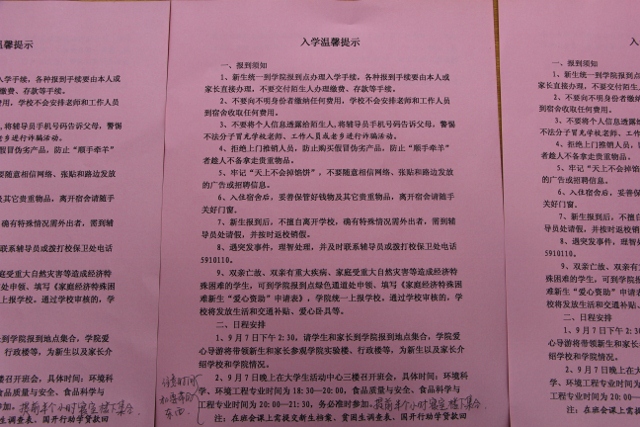 入学温馨提示
一、报到须知
1、新生统一到学院报到点办理入学手续，各种报到手续要由本人或
家长直接办理，不要交付陌生人办理缴费、存款等手续。
2、不要向不明身份者缴纳任何费用，学校不会安排老师和工作人员
到宿舍收取任何费用。
3、不要将个人信息透露给陌生人，将辅导员手机号码告诉父母，警惕
不法分子冒充学校老师、工作人员或老乡进行诈骗活动。
4、拒绝上门推销人员，防止购买假冒伪劣产品，防止“顺手牵羊”
者趁人不备拿走贵重物品。
5、牢记“天上不会掉馅饼”，不要随意相信网络、张贴和路边发放
的广告或招聘信息。
6、入住宿舍后，妥善保管好钱物及其它贵重物品，离开宿舍请随手
关好门窗。
7、新生报到后，不擅自离开学校，确有特殊情况需外出者，需到辅
导员处请假，并按时返校销假。
8、遇突发事件，理智处理，并及时联系辅导员或拨打校保卫处电话
5910110。
9、双亲亡故、双亲有重大疾病、家庭受重大自然灾害等造成经济特
殊困难的学生，可到学院报到点绿色通道处申领、填写《家庭经济特殊困
难新生“爱心资助”申请表》，学院统一上报学校。通过学校审核的，学
校将发放生活和交通补贴、爱心卧具等。
二、日程安排
1、9月7日下午2:30，请学生和家长到学院报到地点集合，学院爱
心导游将带领新生和家长参观学院实验楼、行政楼等，为新生以及家长介
绍学校和学院情况。
2、9月7日晚上在大学生活动中心三楼召开班会，具体时间：环境科
学、环境工程专业时间为18:30—20:00，食品质量与安全、食品科学与
工程专业时间为20:00—21:30，务必准时参加。提前半个小时寝室楼下集合.
注：在班会课上需提交新生档案、贫困生调查表、国开行助学贷款回